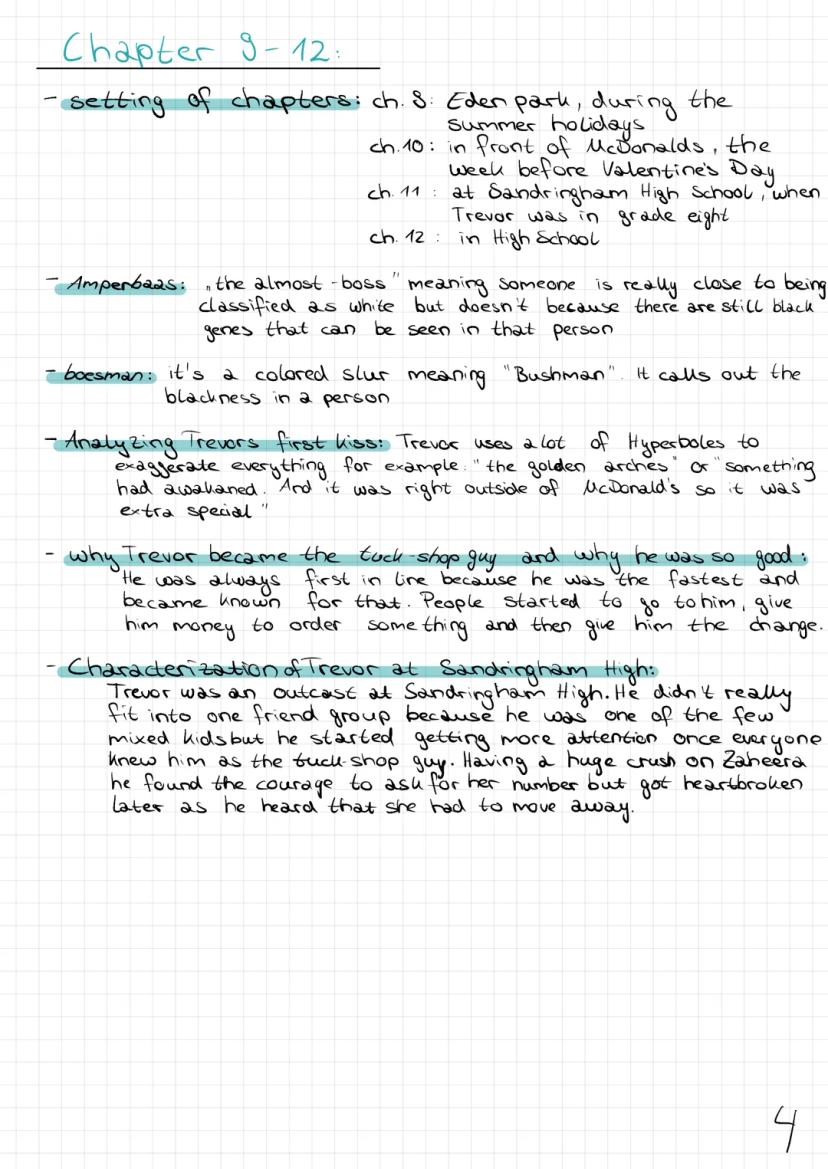 Chapter 9-12:
- setting of chapters: ch. 9: Eden park, during the
summer holidays
ch. 10: in front of McDonalds, the
week before Valentine's Day
ch. 11: at Sandringham High School, when
Trevor was in grade eight
ch. 12: in High School
- Amperbaas: „the almost-boss" meaning someone is really close to being
classified as white but doesn't because there are still black
genes that can be seen in that person
- boesman: it's a colored slur meaning "Bushman". It calls out the
blackness in a person
- Analyzing Trevors first kiss: Trevor uses a lot of Hyperboles to
exaggerate everything for example: "the golden arches" or "something
had awakaned. And it was right outside of McDonald's so it was
extra special"
- why Trevor became the tuck-shop guy and why he was so good:
He was always first in line because he was the fastest and
became known for that. People started to go to him, give
him money to order something and then give him the change.
- Characterization of Trevor at Sandringham High:
Trevor was an outcast at Sandringham High. He didn't really
fit into one friend group because he was one of the few
mixed kids but he started getting more attention once everyone
knew him as the tuck-shop guy. Having a huge crush on Zaheera
he found the courage to ask for her number but got heartbroken
later as he heard that she had to move away.
4